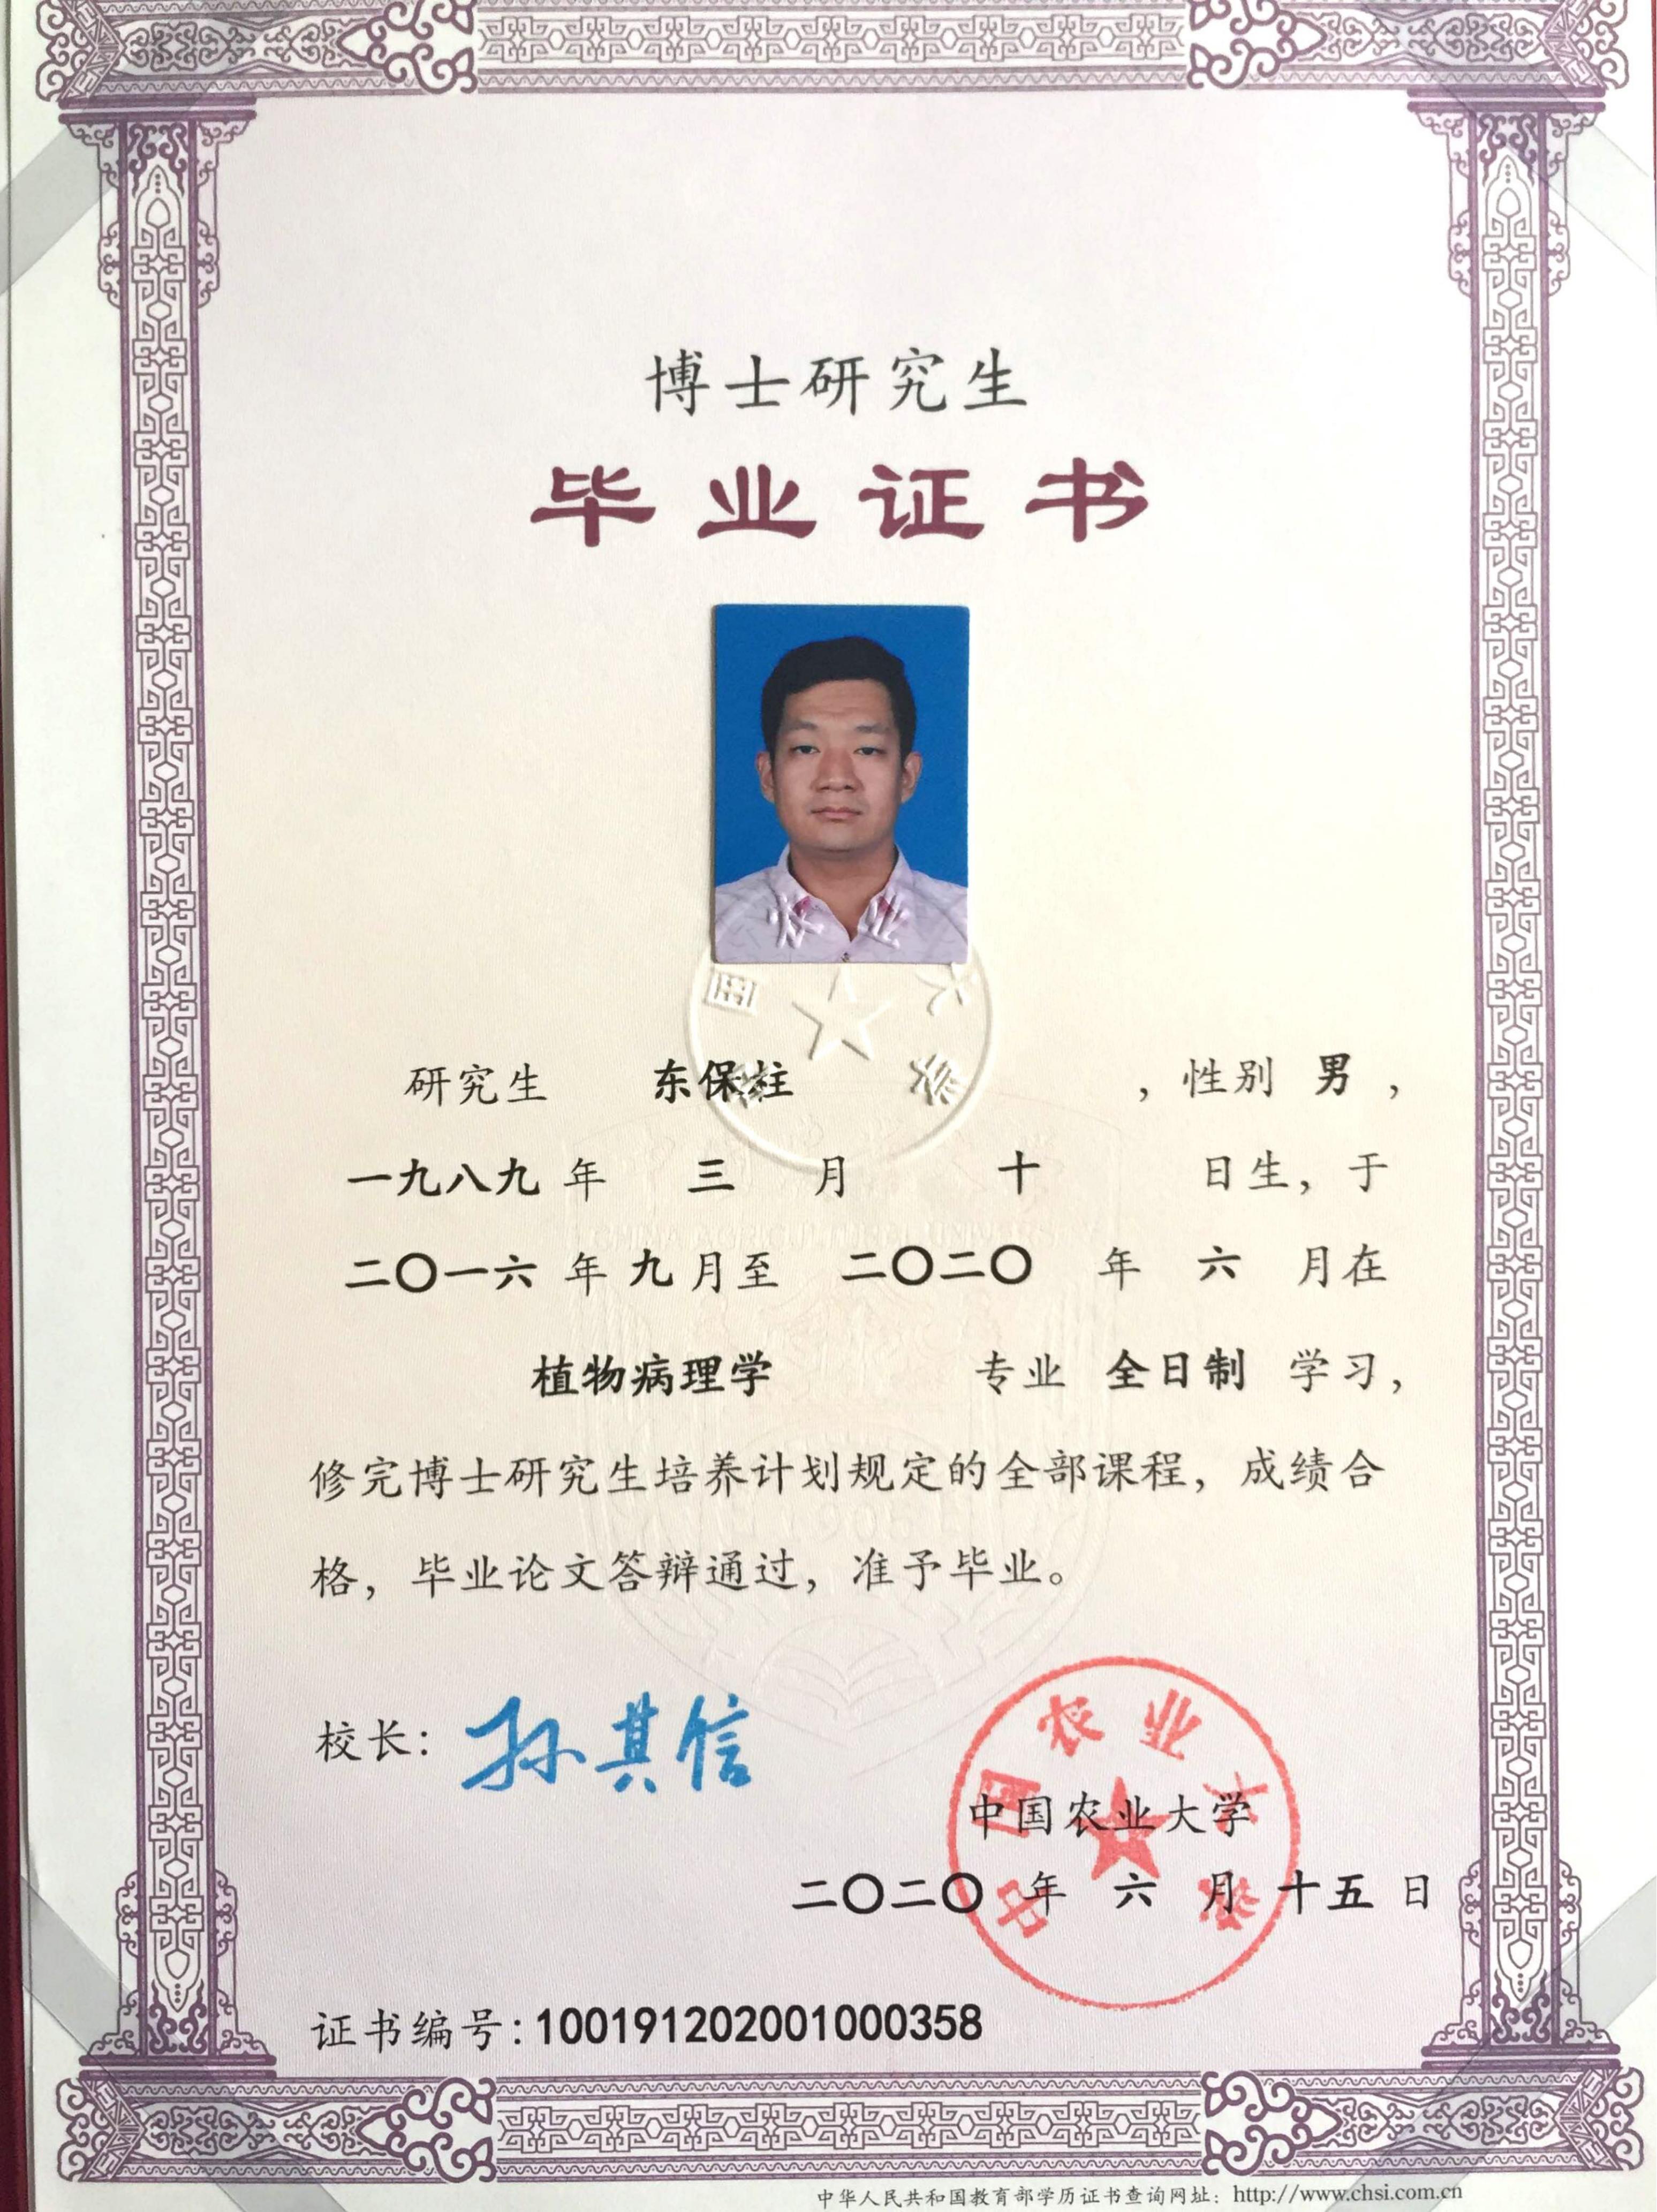 博士研究生
毕业证书
研究生 东保柱 ，性别 男 ，
一九八九 年 三 月 十 日生，于
二〇一六 年 九 月至 二〇二〇 年 六 月在
植物病理学 专业 全日制 学习，
修完博士研究生培养计划规定的全部课程，成绩合
格，毕业论文答辩通过，准予毕业。
校长：孙其信
中国农业大学
中国农业大学
二〇二〇 年 六 月 十五 日
证书编号：100191202001000358
中华人民共和国教育部学历证书查询网址：http://www.chsi.com.cn
CHINA AGRICULTURAL UNIVERSITY
1905